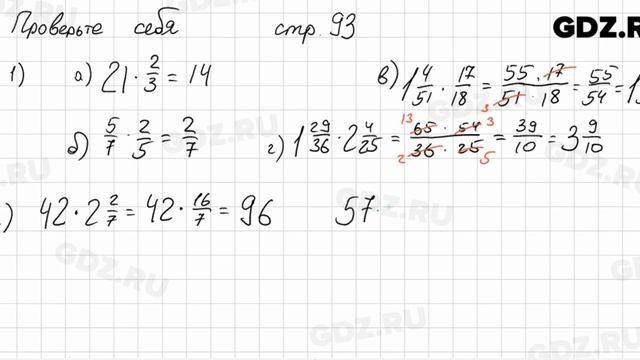 Проверьте себя стр. 93
GDZ.RU
1) а) 21 · 2/3 = 14
в) 1 4/51 · 17/18 = 55 · 17 / 51 · 18 = 55/54 = 1
3
б) 5/7 · 2/5 = 2/7
г) 1 29/36 · 2 4/25 = 65 · 54 / 36 · 25 = 39/10 = 3 9/10
13 3 2 5
) 42 · 2 2/7 = 42 · 16/7 = 96 57 ·
GDZ.RU